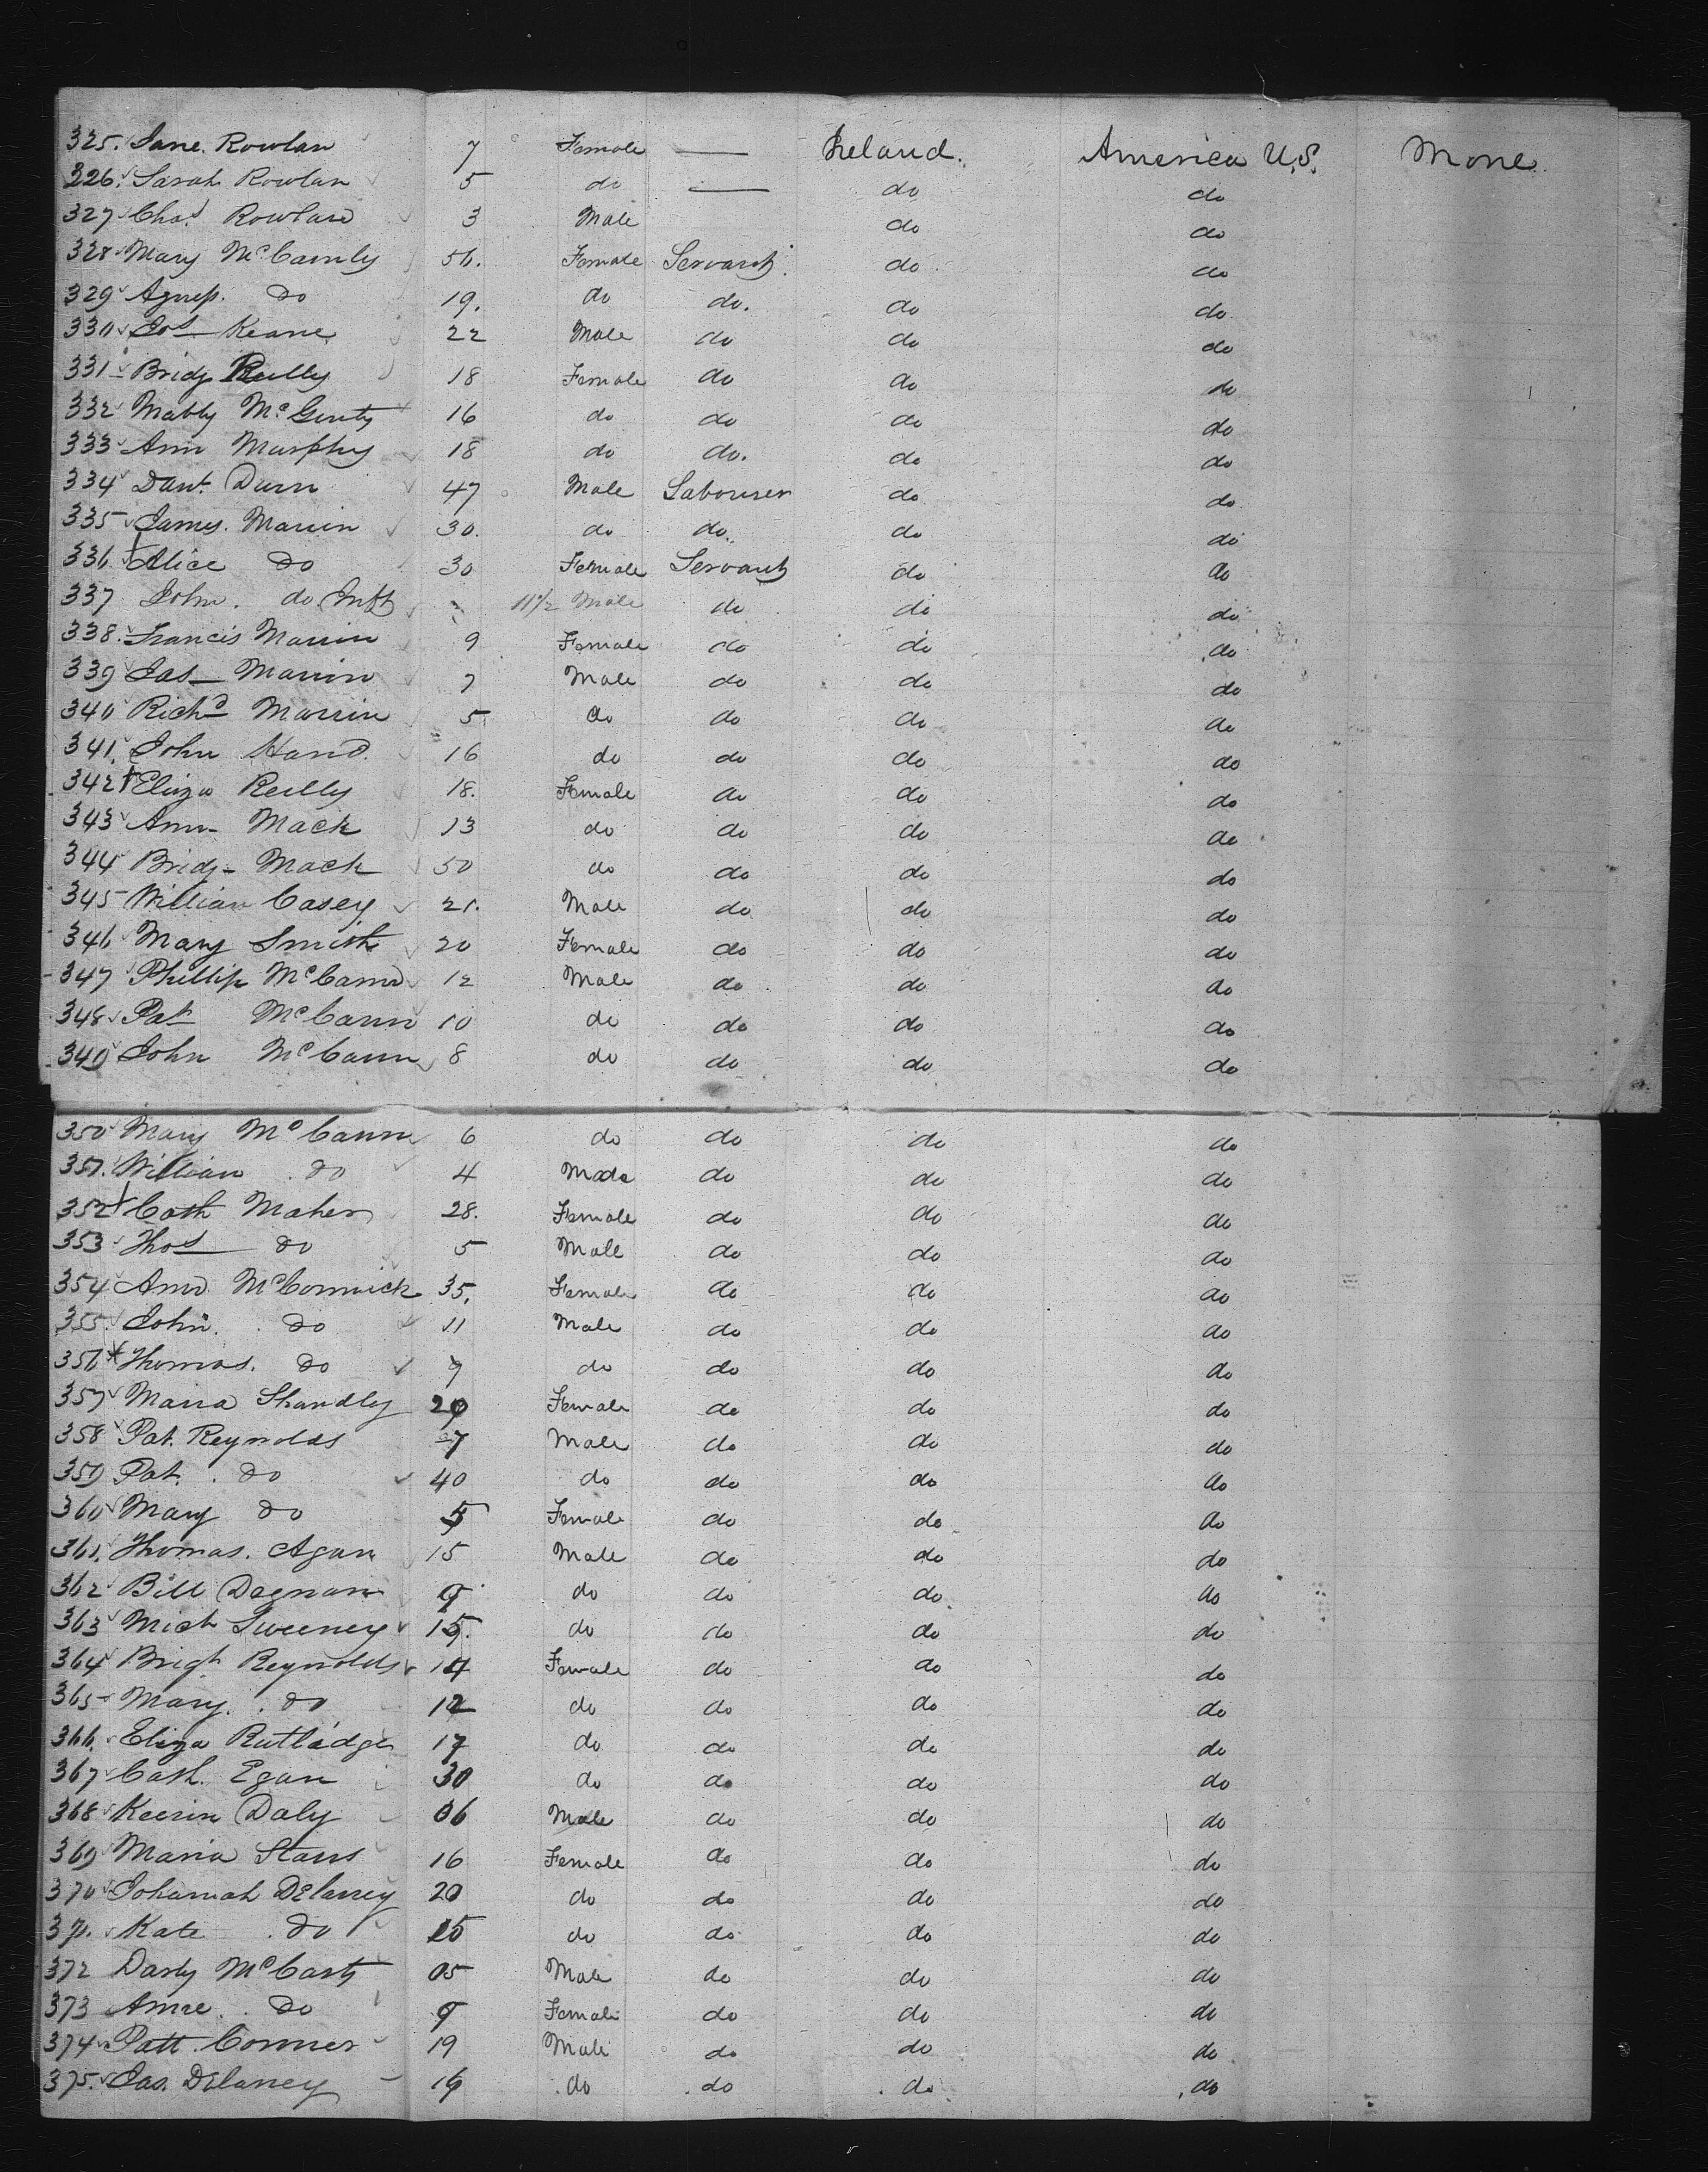 325. Jane Rowlan 7 Female — Ireland. America U.S. None
326. Sarah Rowlan 5 do — do do
327 Chas. Rowlan 3 Male do do
328 Mary McCamly 56. Female Servant do do
329 Agness. do 19. do do. do do
330 Jos Keane 22 Male do do do
331 Bridg Reilly 18 Female do do do
332 Mably McGinty 16 do do do do
333 Ann Murphy 18 do do. do do
334 Danl. Dunn 47 Male Labourer do do
335 James. Marrin 30. do do. do do
336 Alice do 30 Female Servant do do
337 John. do Inft 11 1/2 Male do do do
338. Francis Marrin 9 Female do do do
339 Jas Marrin 7 Male do do do
340 Richd Marrin 5 do do do do
341. John Hand. 16 do do do do
342 Eliza Reilly 18. Female do do do
343 Ann Mack 13 do do do do
344 Bridg- Mack 50 do do do do
345 William Casey 21. Male do do do
346 Mary Smith 20 Female do do do
347 Phillip McCann 12 Male do do do
348 Pat McCann 10 do do do do
349 John McCann 8 do do do do
350 Mary McCann 6 do do do do
351. William do 4 Male do do do
352 Cath Maher 28. Female do do do
353 Thos do 5 Male do do do
354 Ann McCormick 35. Female do do do
355. John. do 11 Male do do do
356 Thomas. do 9 do do do do
357 Maria Shandly 20 Female do do do
358 Pat. Reynolds 7 Male do do do
359 Pat. do 40 do do do do
360 Mary do 5 Female do do do
361. Thomas. Agan 15 Male do do do
362 Bill Degnan 9 do do do do
363 Mich Sweeney 15. do do do do
364 Brigt Reynolds 14 Female do do do
365 Mary. do 12 do do do do
366. Eliza Rutladge 17 do do do do
367 Cath. Egan 30 do do do do
368 Keerin Daly 06 Male do do do
369 Maria Stars 16 Female do do do
370 Johannah Delaney 20 do do do do
371. Kate do 15 do do do do
372 Darly McCarty 05 Male do do do
373 Anne. do 9 Female do do do
374 Patt Conner 19 Male do do do
375. Jas. Delaney 16 do do do do